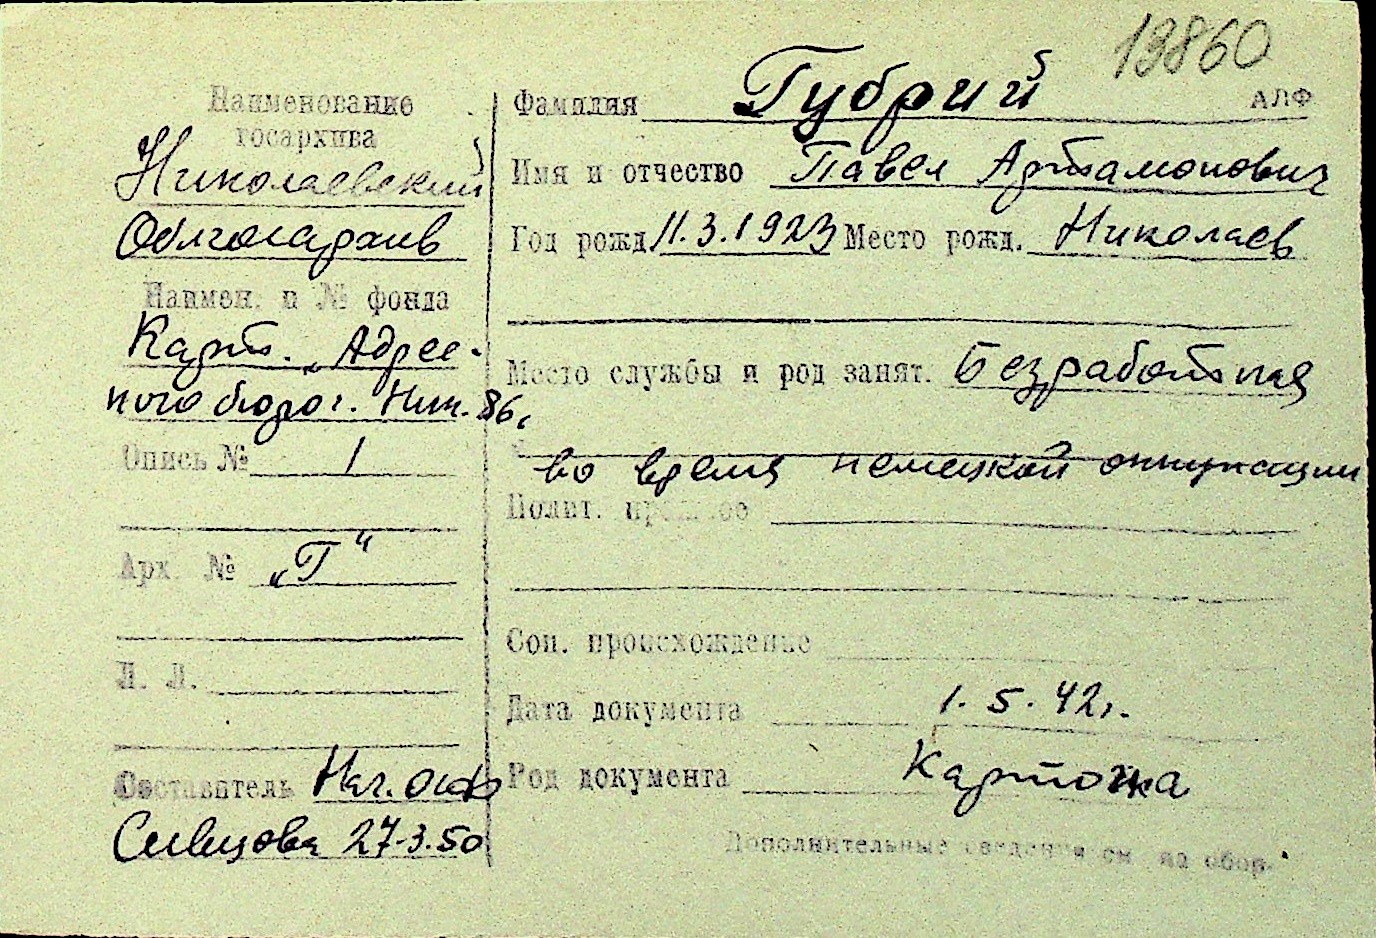 19860
АЛФ
Наименование
госархива
Николаевский
Облгосархив
Наимен. и № фонда
Карт. „Адрес-
ного бюро г. Ник.
Опись № 1
Арх. № „Г"
Л. Л.
Составитель Нач. ОИФ
Сивцова 27-3.50
Фамилия Губрий
Имя и отчество Павел Артамонович
Год рожд. 11.3.1923 Место рожд. Николаев
Место службы и род занят. Безработная
во время немецкой оккупации
Полит. прошлое
Соц. происхождение
Дата документа 1.5.42г.
Род документа Карточка
Дополнительные сведения см на обор.